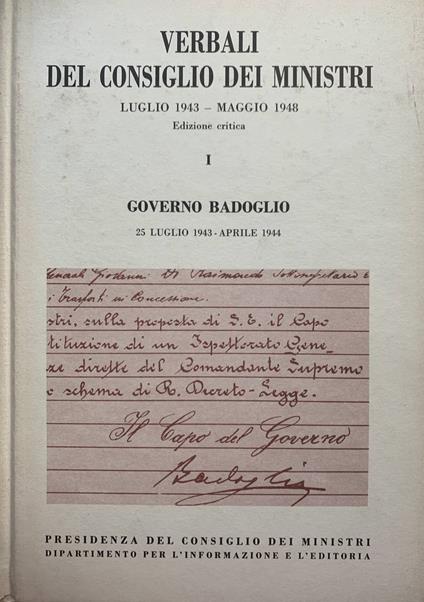 VERBALI
DEL CONSIGLIO DEI MINISTRI
LUGLIO 1943 – MAGGIO 1948
Edizione critica
I
GOVERNO BADOGLIO
25 LUGLIO 1943 - APRILE 1944
Giovanni Di Raimondo Sottosegretario
i Trasporti in Concessione.
stri, sulla proposta di S. E. il Capo
tituzione di un Ispettorato Gene
ze dirette del Comandante Supremo
o schema di R. Decreto-Legge.
Il Capo del Governo
Badoglio
PRESIDENZA DEL CONSIGLIO DEI MINISTRI
DIPARTIMENTO PER L'INFORMAZIONE E L'EDITORIA